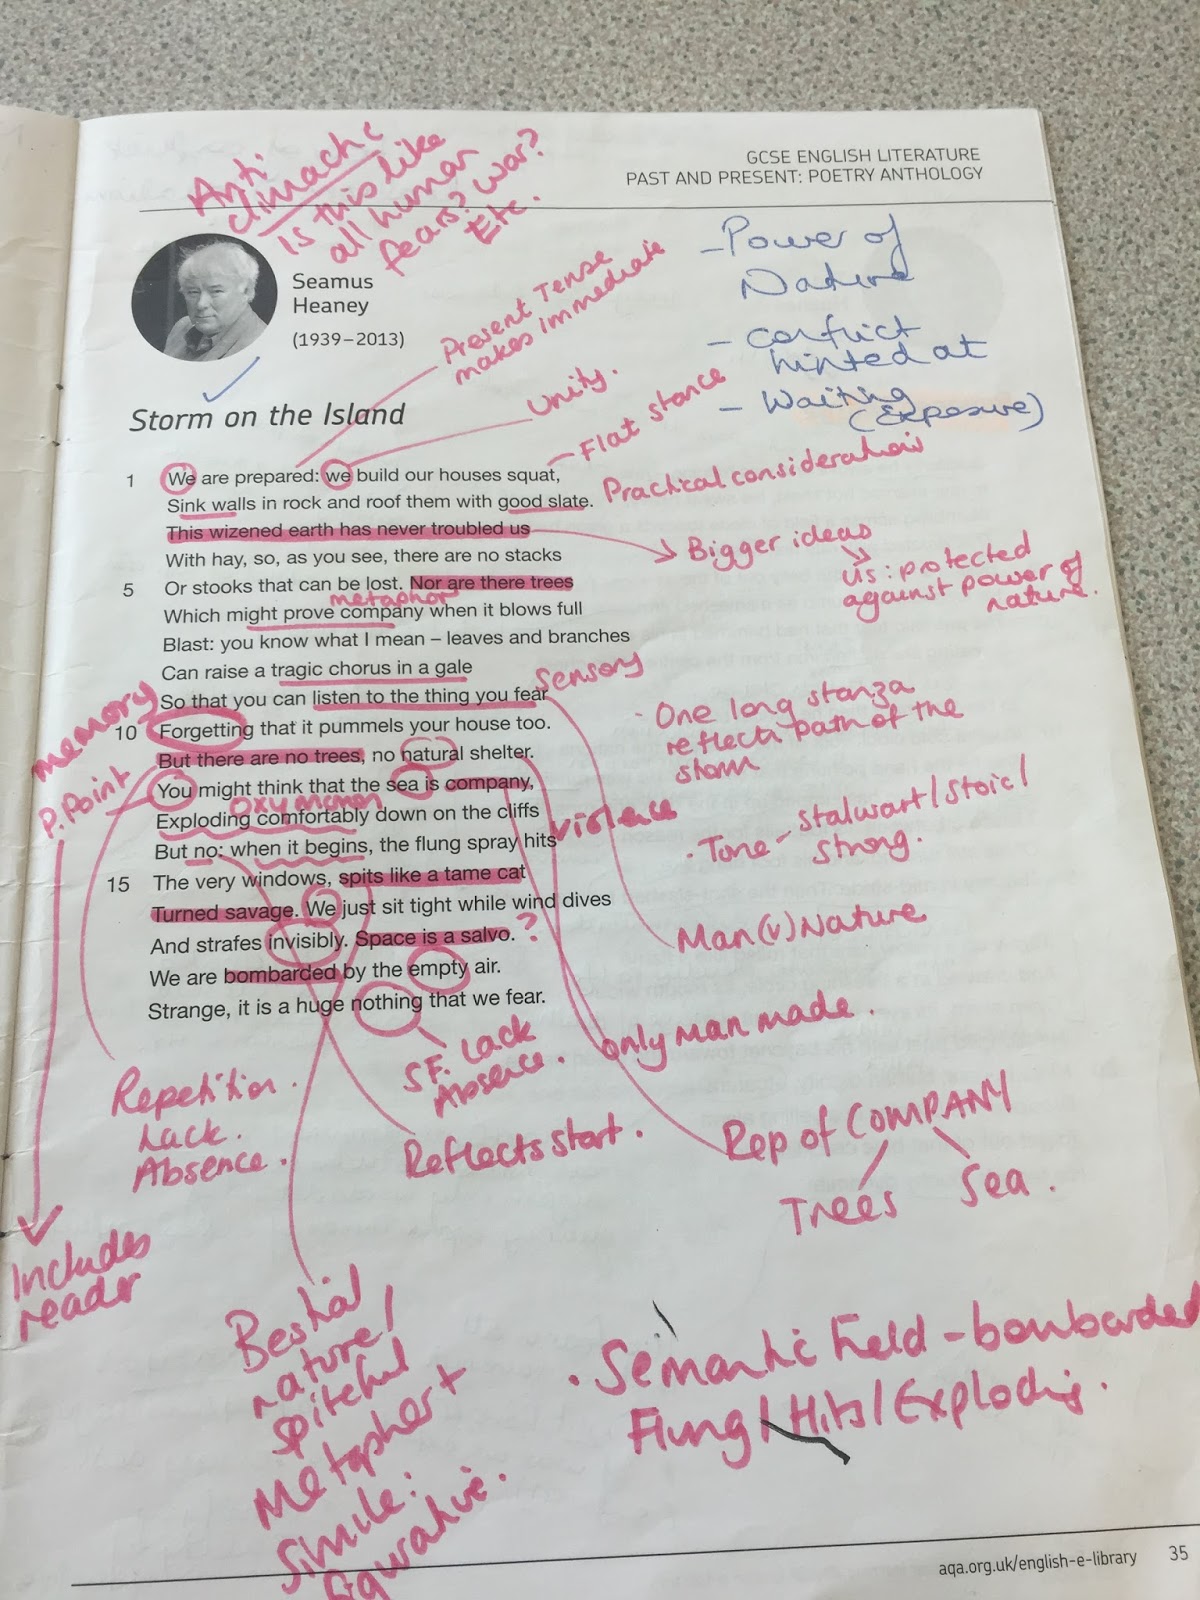 GCSE ENGLISH LITERATURE
PAST AND PRESENT: POETRY ANTHOLOGY
Anti
climactic
Is this like
all human
fears? war?
Etc.
Seamus
Heaney
(1939–2013)
Present Tense
makes immediate
Unity.
- Flat stance
- Power of
Nature
- Conflict
hinted at
- Waiting
(Exposure)
Storm on the Island
1 We are prepared: we build our houses squat,
Sink walls in rock and roof them with good slate.
Practical considerations
This wizened earth has never troubled us
Bigger ideas
With hay, so, as you see, there are no stacks
us: protected
against power of
nature.
5 Or stooks that can be lost. Nor are there trees
metaphor
Which might prove company when it blows full
Blast: you know what I mean – leaves and branches
Can raise a tragic chorus in a gale
So that you can listen to the thing you fear
Sensory
memory
10 Forgetting that it pummels your house too.
But there are no trees, no natural shelter.
P. Point
You might think that the sea is company,
oxymoron
Exploding comfortably down on the cliffs
violence
But no: when it begins, the flung spray hits
15 The very windows, spits like a tame cat
Turned savage. We just sit tight while wind dives
And strafes invisibly. Space is a salvo.
?
We are bombarded by the empty air.
Strange, it is a huge nothing that we fear.
· One long stanza
reflects path of the
storm
· Tone - stalwart / stoic /
strong.
Man (v) Nature
only man made.
SF: Lack
Absence.
Repetition.
Lack.
Absence.
Reflects start.
Rep of COMPANY
Trees Sea.
Includes
reader
Bestial
nature /
spiteful
Metapher +
Simile:
figurative.
· Semantic Field - bombarded
Flung / Hits / Exploding.
aqa.org.uk/english-e-library 35